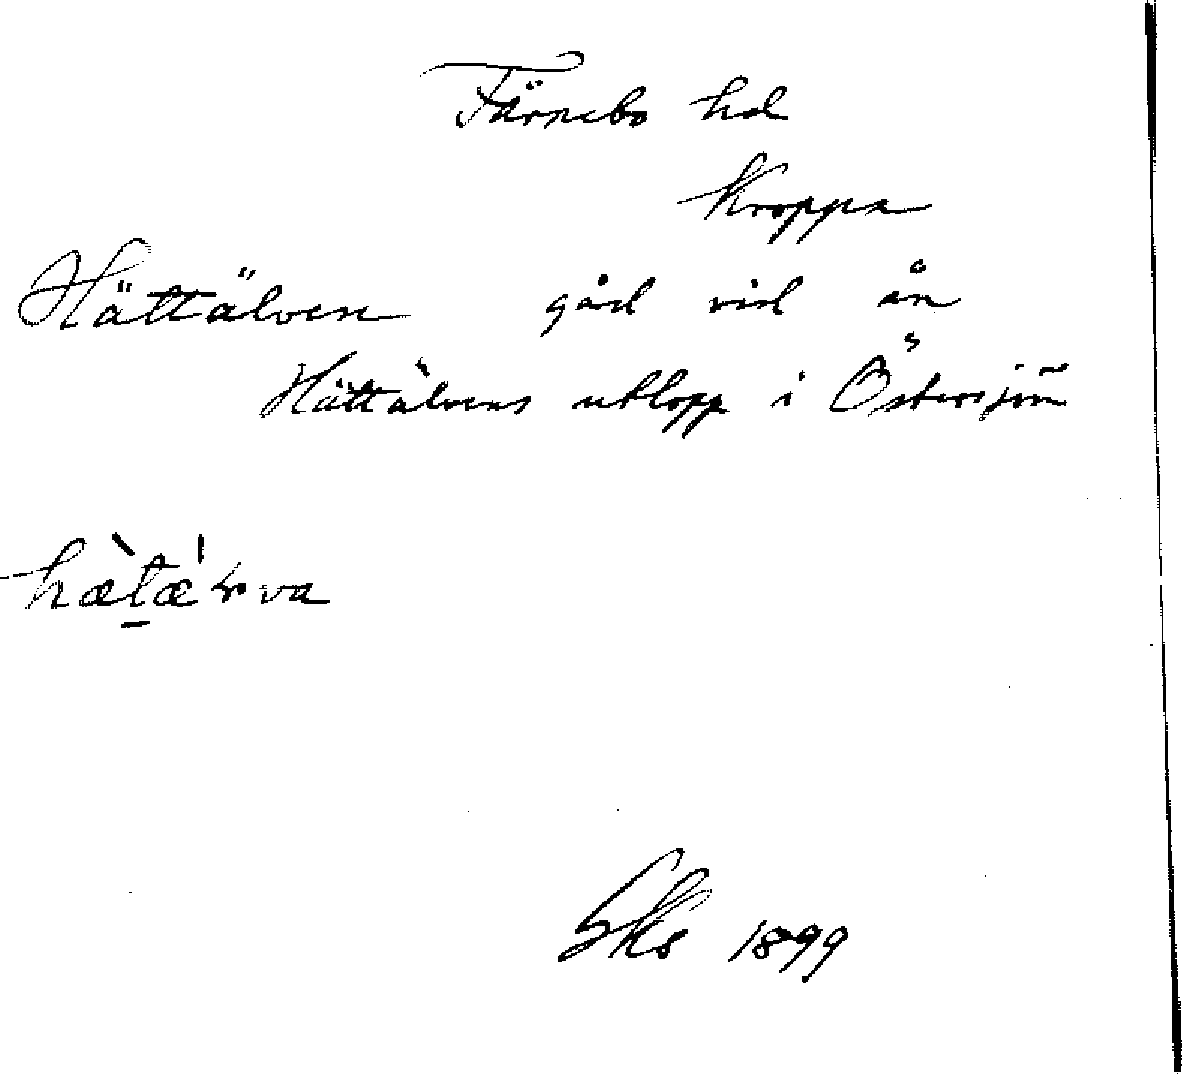 Färnebo hd
Kroppa
Hättälven gård vid ån
Hättälvens utlopp i Östersjön
hæ̀tæ̍rva
Sks 1899